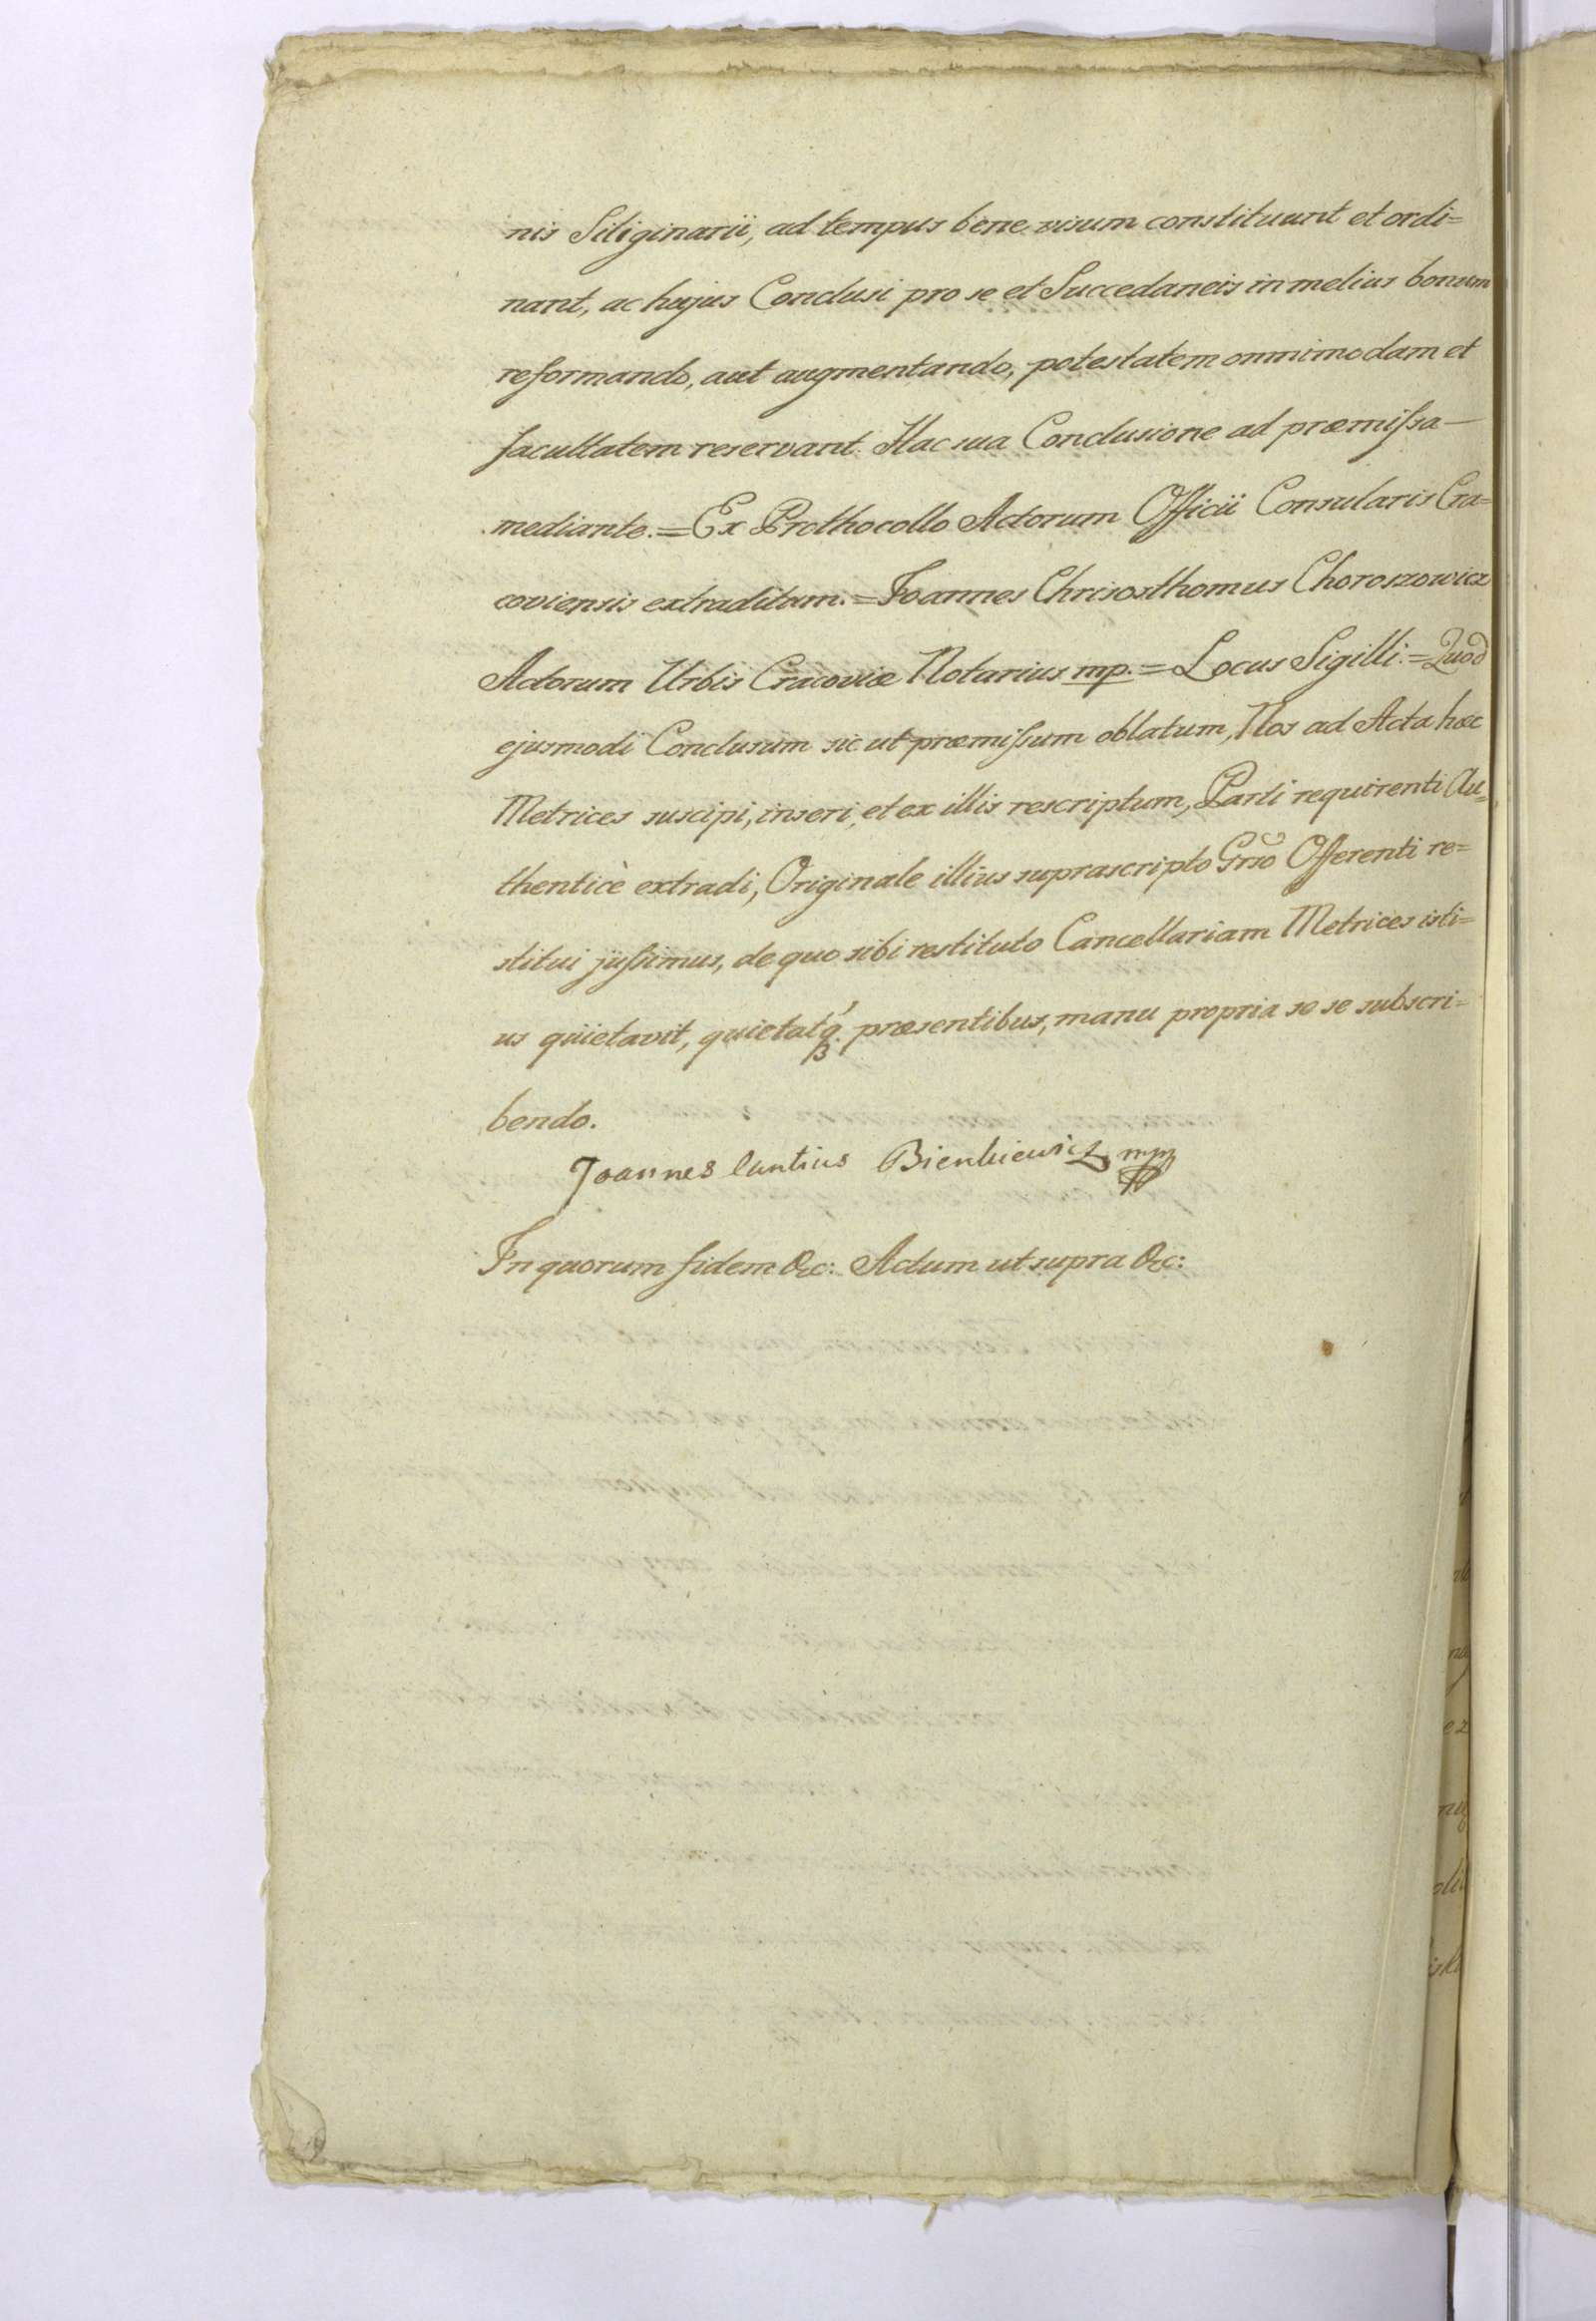 nis Siliginarii, ad tempus bene visum constituunt et ordi=
nant, ac hujus Conclusi pro se et Succedaneis in melius bonum
reformando, aut augmentando, potestatem omnimodam et
facultatem reservant. Hac sua Conclusione ad præmiſsa —
mediante. = Ex Prothocollo Actorum Officii Consularis Cra=
coviensis extraditum. = Joannes Chrisosthomus Choroszowicz
Actorum Urbis Cracoviæ Notarius mp. = Locus Sigilli. = Quod
ejusmodi Conclusum sic ut præmiſsum oblatum, Nos ad Acta hæc
Metrices suscipi, inseri, et ex illis rescriptum, Parti requirenti Au=
thenticè extradi, Originale illius suprascripto Gnso Offerenti re=
stitui juſsimus, de quo sibi restituto Cancellariam Metrices isti=
us quietavit, quietatq́ præsentibus, manu propria se se subscri=
bendo.
Joannes Cantius Bienkiewicz mp
In quorum fidem &c: Actum ut supra &c: